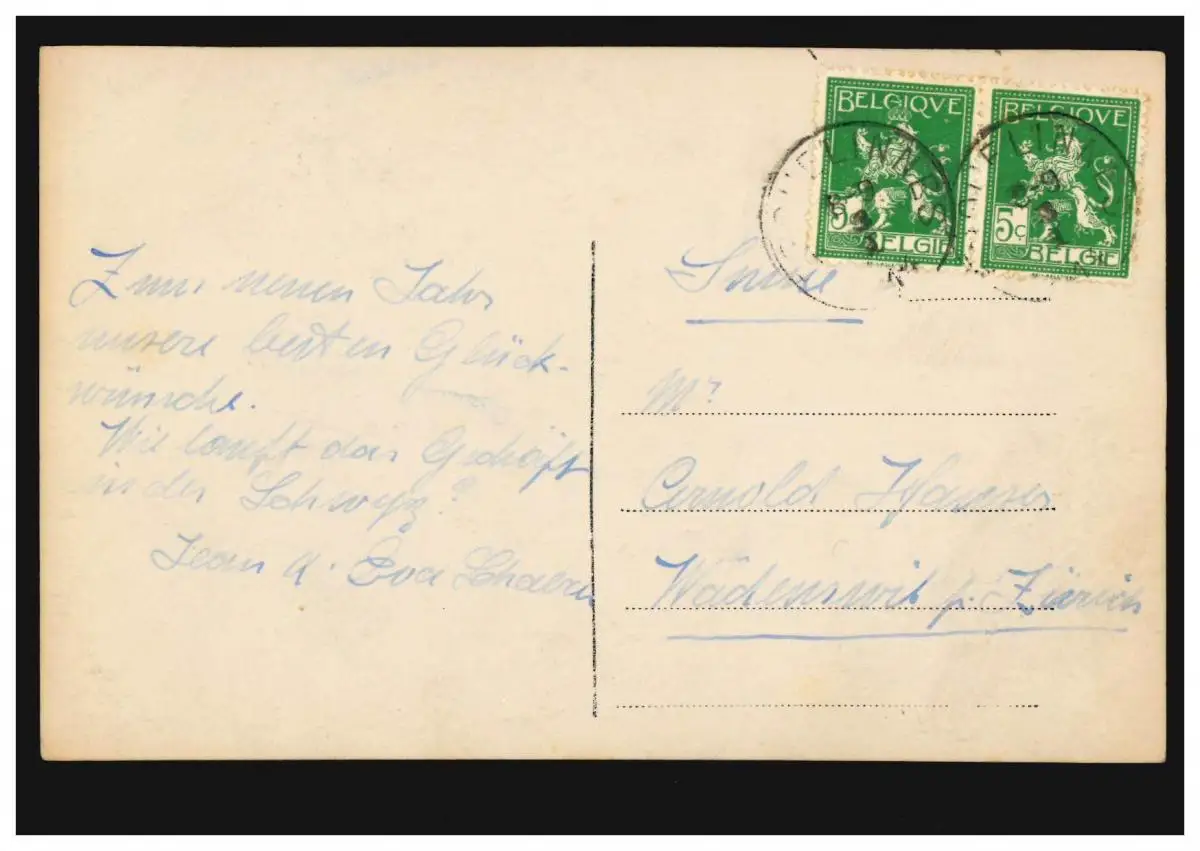 Zum neuen Jahr
unsere besten Glück-
wünsche.
Wie lauft das Geschäft
in der Schweyz?
Jean u. Eva
BELGIQVE
5c
BELGIE
BELGIQVE
5c
BELGIE
8-9
8-9
Suisse
Mr
Arnold
Wädenswil b. Zürich